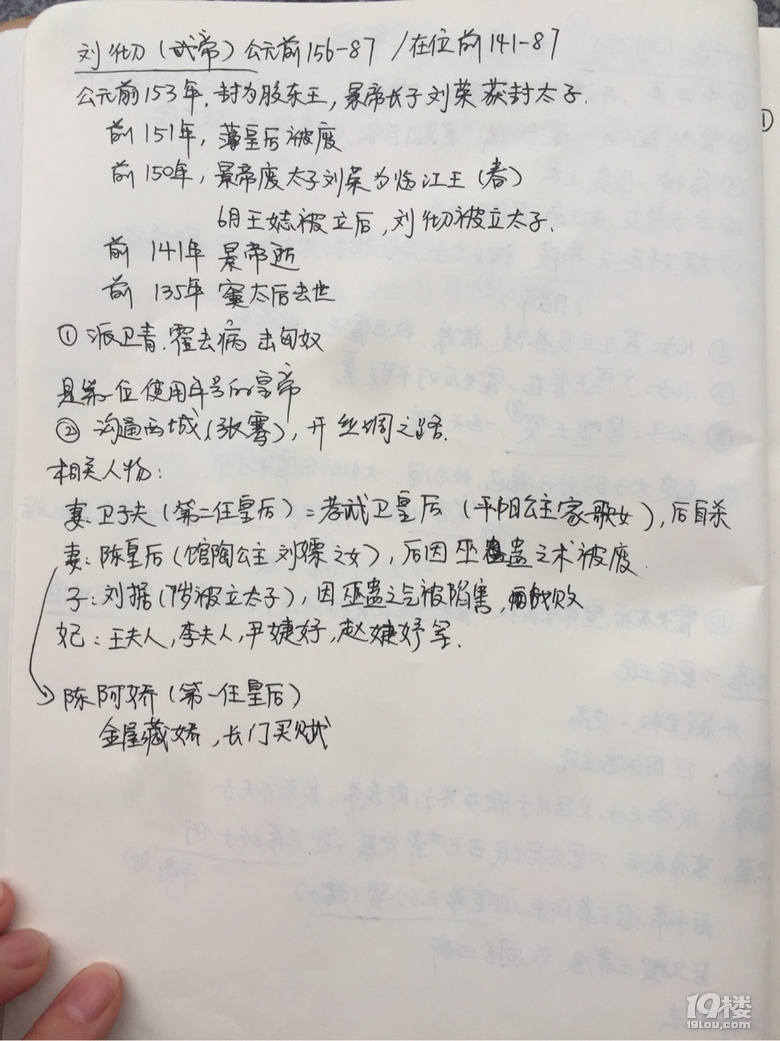 刘彻(武帝)公元前156-87 / 在位前141-87
公元前153年,封为胶东王,景帝长子刘荣获封太子.
前151年,薄皇后被废
前150年,景帝废太子刘荣为临江王(春)
6月王娡被立后,刘彻被立太子.
前141年 景帝逝
前135年 窦太后去世
① 派卫青.霍去病 击匈奴
是第一位使用年号的皇帝
② 沟通西域(张骞),开丝绸之路.
相关人物:
妻:卫子夫(第二任皇后)=孝武卫皇后(平阳公主家歌女),后自杀
妻:陈皇后(馆陶公主 刘嫖之女),后因巫蛊之术被废.
子:刘据(7岁被立太子),因巫蛊之乞被陷害,战败
妃:王夫人,李夫人,尹婕妤,赵婕妤等.
陈阿娇(第一任皇后)
金屋藏娇,长门买赋
①
19楼
19lou.com